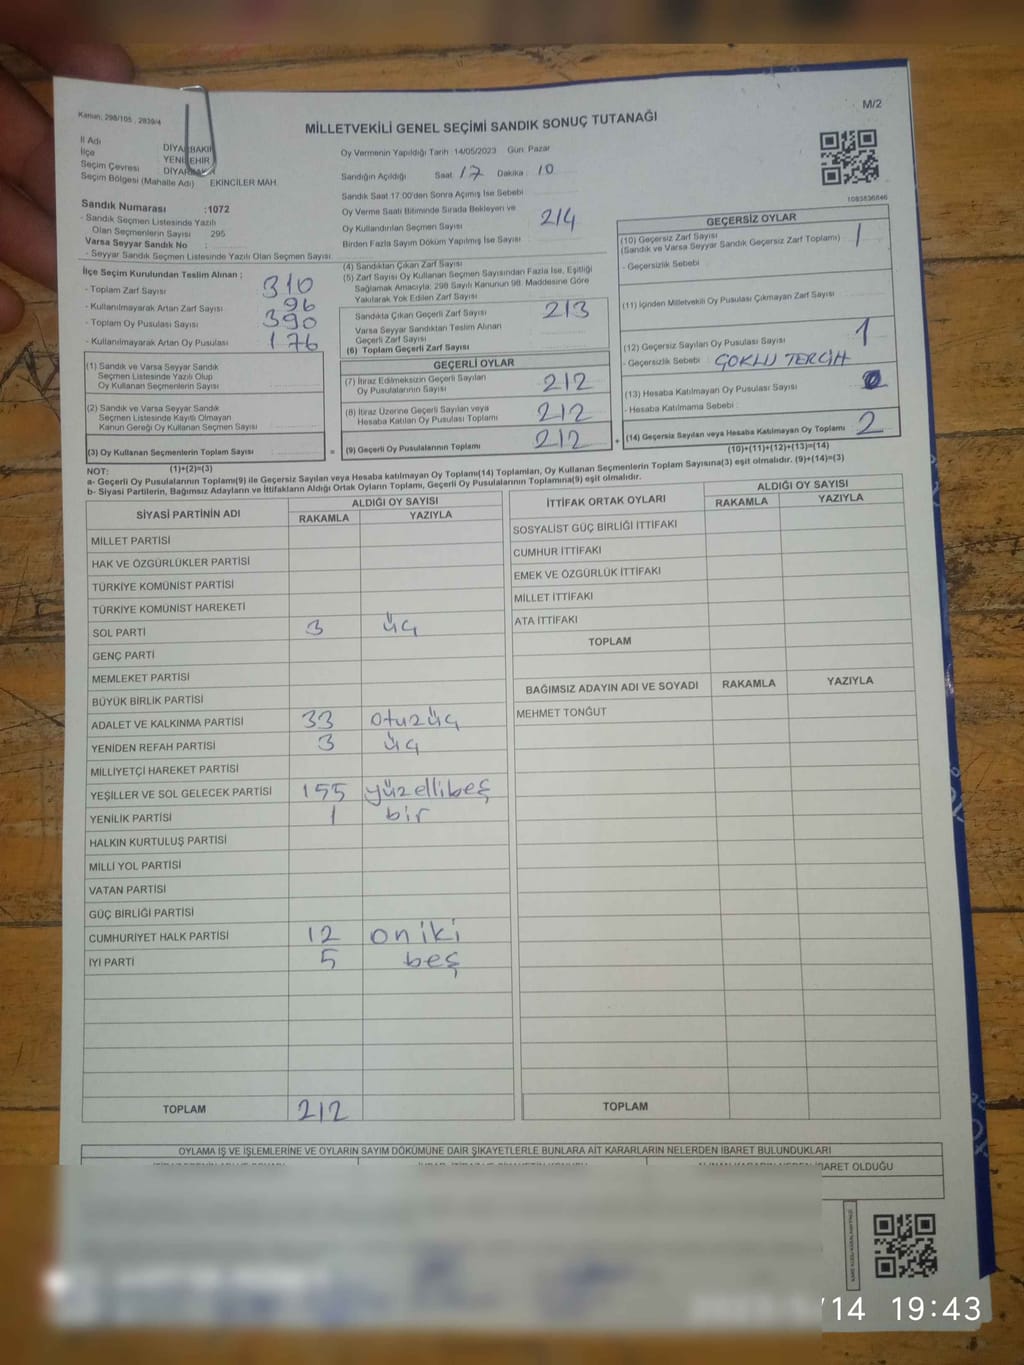 Kanun, 298/105 , 2839/4
M/2
MİLLETVEKİLİ GENEL SEÇİMİ SANDIK SONUÇ TUTANAĞI
İl Adı DİYARBAKIR
İlçe YENİŞEHİR
Seçim Çevresi
Seçim Bölgesi (Mahalle Adı) EKİNCİLER MAH.
Sandık Numarası :1072
- Sandık Seçmen Listesinde Yazılı
Olan Seçmenlerin Sayısı 295
Varsa Seyyar Sandık No :
- Seyyar Sandık Seçmen Listesinde Yazılı Olan Seçmen Sayısı
Oy Vermenin Yapıldığı Tarih :14/05/2023 Gün: Pazar
Sandığın Açıldığı Saat 17 Dakika 10
Sandık Saat 17:00'den Sonra Açımış İse Sebebi
Oy Verme Saati Bitiminde Sırada Bekleyen ve
Oy Kullandırılan Seçmen Sayısı 214
Birden Fazla Sayım Döküm Yapılmış İse Sayısı
1083836846
İlçe Seçim Kurulundan Teslim Alınan ;
- Toplam Zarf Sayısı 310
- Kullanılmayarak Artan Zarf Sayısı 96
- Toplam Oy Pusulası Sayısı 390
- Kullanılmayarak Artan Oy Pusulası 176
(1) Sandık ve Varsa Seyyar Sandık
Seçmen Listesinde Yazılı Olup
Oy Kullanan Seçmenlerin Sayısı
(2) Sandık ve Varsa Seyyar Sandık
Seçmen Listesinde Kayıtlı Olmayan
Kanun Gereği Oy Kullanan Seçmen Sayısı
(3) Oy Kullanan Seçmenlerin Toplam Sayısı
(4) Sandıktan Çıkan Zarf Sayısı
(5) Zarf Sayısı Oy Kullanan Seçmen Sayısından Fazla İse, Eşitliği
Sağlamak Amacıyla; 298 Sayılı Kanunun 98. Maddesine Göre
Yakılarak Yok Edilen Zarf Sayısı
Sandıkta Çıkan Geçerli Zarf Sayısı 213
Varsa Seyyar Sandıktan Teslim Alınan
Geçerli Zarf Sayısı
(6) Toplam Geçerli Zarf Sayısı
GEÇERLİ OYLAR
(7) İtiraz Edilmeksizin Geçerli Sayılan
Oy Pusulalarının Sayısı 212
(8) İtiraz Üzerine Geçerli Sayılan veya
Hesaba Katılan Oy Pusulası Toplamı 212
= (9) Geçerli Oy Pusulalarının Toplamı 212 +
GEÇERSİZ OYLAR
(10) Geçersiz Zarf Sayısı 1
(Sandık ve Varsa Seyyar Sandık Geçersiz Zarf Toplamı)
- Geçersizlik Sebebi :
(11) İçinden Milletvekili Oy Pusulası Çıkmayan Zarf Sayısı
(12) Geçersiz Sayılan Oy Pusulası Sayısı 1
- Geçersizlik Sebebi : ÇOKLU TERCİH
(13) Hesaba Katılmayan Oy Pusulası Sayısı
- Hesaba Katılmama Sebebi :
(14) Geçersiz Sayılan veya Hesaba Katılmayan Oy Toplamı 2
(10)+(11)+(12)+(13)=(14)
NOT: (1)+(2)=(3)
a- Geçerli Oy Pusulalarının Toplamı(9) ile Geçersiz Sayılan veya Hesaba katılmayan Oy Toplamı(14) Toplamları, Oy Kullanan Seçmenlerin Toplam Sayısına(3) eşit olmalıdır. (9)+(14)=(3)
b- Siyasi Partilerin, Bağımsız Adayların ve İttifakların Aldığı Ortak Oyların Toplamı, Geçerli Oy Pusulalarının Toplamına(9) eşit olmalıdır.
SİYASİ PARTİNİN ADI ALDIĞI OY SAYISI
RAKAMLA YAZIYLA
MİLLET PARTİSİ
HAK VE ÖZGÜRLÜKLER PARTİSİ
TÜRKİYE KOMÜNİST PARTİSİ
TÜRKİYE KOMÜNİST HAREKETİ
SOL PARTİ 3 üç
GENÇ PARTİ
MEMLEKET PARTİSİ
BÜYÜK BİRLİK PARTİSİ
ADALET VE KALKINMA PARTİSİ 33 otuzüç
YENİDEN REFAH PARTİSİ 3 üç
MİLLİYETÇİ HAREKET PARTİSİ
YEŞİLLER VE SOL GELECEK PARTİSİ 155 yüzellibeş
YENİLİK PARTİSİ 1 bir
HALKIN KURTULUŞ PARTİSİ
MİLLİ YOL PARTİSİ
VATAN PARTİSİ
GÜÇ BİRLİĞİ PARTİSİ
CUMHURİYET HALK PARTİSİ 12 oniki
İYİ PARTİ 5 beş
TOPLAM 212
İTTİFAK ORTAK OYLARI ALDIĞI OY SAYISI
RAKAMLA YAZIYLA
SOSYALİST GÜÇ BİRLİĞİ İTTİFAKI
CUMHUR İTTİFAKI
EMEK VE ÖZGÜRLÜK İTTİFAKI
MİLLET İTTİFAKI
ATA İTTİFAKI
TOPLAM
BAĞIMSIZ ADAYIN ADI VE SOYADI RAKAMLA YAZIYLA
MEHMET TONĞUT
TOPLAM
OYLAMA İŞ VE İŞLEMLERİNE VE OYLARIN SAYIM DÖKÜMÜNE DAİR ŞİKAYETLERLE BUNLARA AİT KARARLARIN NELERDEN İBARET BULUNDUKLARI
İBARET OLDUĞU
/14 19:43